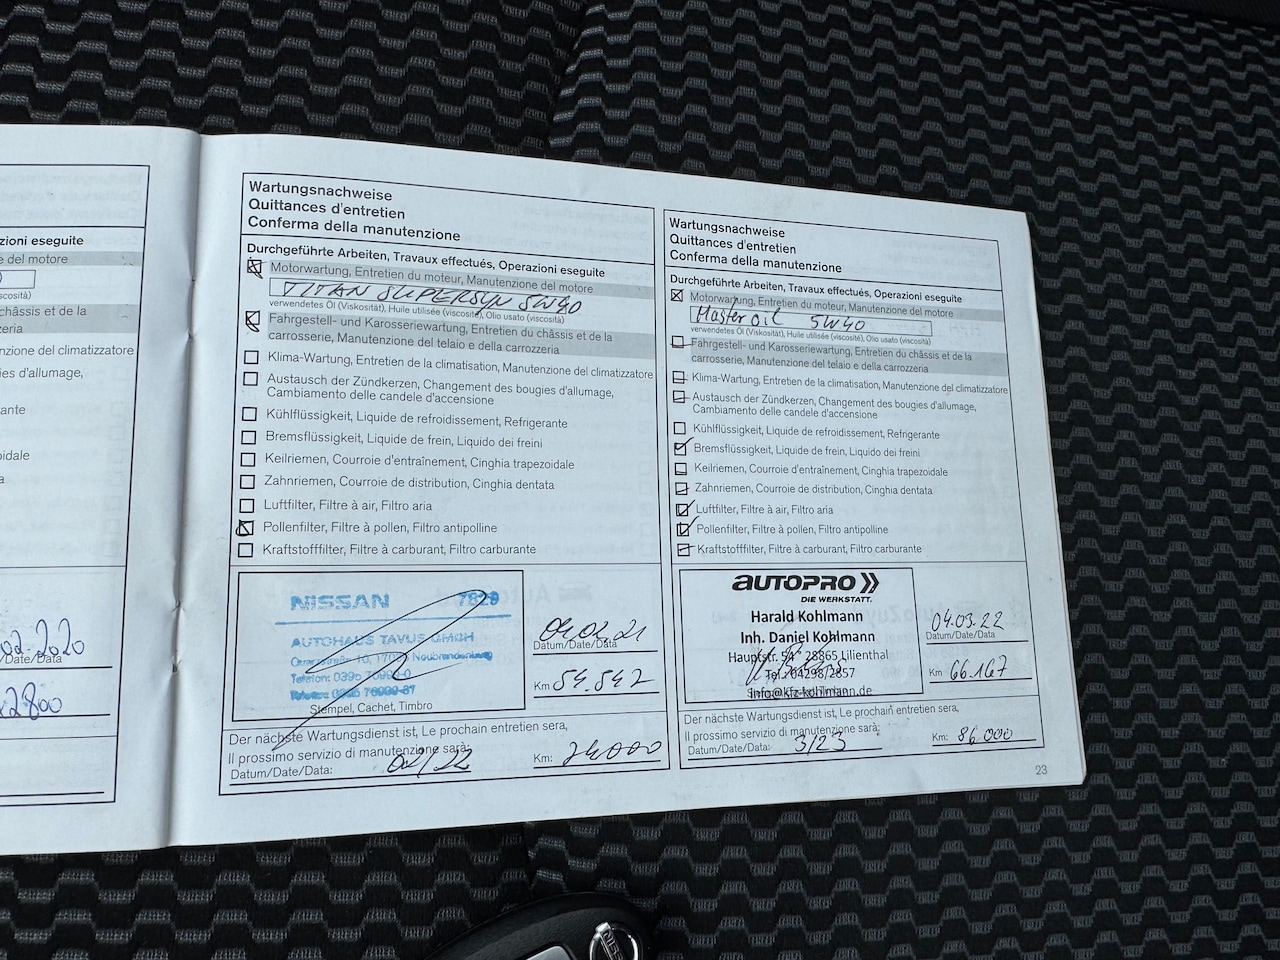 zioni eseguite
e del motore
scosità)
châssis et de la
zeria
nzione del climatizzatore
ies d'allumage,
ante
oidale
a
02.2020
/Date/Data
2800
Wartungsnachweise
Quittances d'entretien
Conferma della manutenzione
Durchgeführte Arbeiten, Travaux effectués, Operazioni eseguite
Motorwartung, Entretien du moteur, Manutenzione del motore
TITAN SUPERSYN 5W40
verwendetes Öl (Viskosität), Huile utilisée (viscosité), Olio usato (viscosità)
Fahrgestell- und Karosseriewartung, Entretien du châssis et de la
carrosserie, Manutenzione del telaio e della carrozzeria
Klima-Wartung, Entretien de la climatisation, Manutenzione del climatizzatore
Austausch der Zündkerzen, Changement des bougies d'allumage,
Cambiamento delle candele d'accensione
Kühlflüssigkeit, Liquide de refroidissement, Refrigerante
Bremsflüssigkeit, Liquide de frein, Liquido dei freini
Keilriemen, Courroie d'entraînement, Cinghia trapezoidale
Zahnriemen, Courroie de distribution, Cinghia dentata
Luftfilter, Filtre à air, Filtro aria
Pollenfilter, Filtre à pollen, Filtro antipolline
Kraftstofffilter, Filtre à carburant, Filtro carburante
NISSAN 7829
AUTOHAUS TAVUS GMBH
Neubrandenburg
Telefon: 0395
Stempel, Cachet, Timbro
04.02.21
Datum/Date/Data
Km 54.542
Der nächste Wartungsdienst ist, Le prochain entretien sera,
Il prossimo servizio di manutenzione sarà:
Datum/Date/Data: 02/22 Km: 74000
Wartungsnachweise
Quittances d'entretien
Conferma della manutenzione
Durchgeführte Arbeiten, Travaux effectués, Operazioni eseguite
Motorwartung, Entretien du moteur, Manutenzione del motore
Master oil 5W40
verwendetes Öl (Viskosität), Huile utilisée (viscosité), Olio usato (viscosità)
Fahrgestell- und Karosseriewartung, Entretien du châssis et de la
carrosserie, Manutenzione del telaio e della carrozzeria
Klima-Wartung, Entretien de la climatisation, Manutenzione del climatizzatore
Austausch der Zündkerzen, Changement des bougies d'allumage,
Cambiamento delle candele d'accensione
Kühlflüssigkeit, Liquide de refroidissement, Refrigerante
Bremsflüssigkeit, Liquide de frein, Liquido dei freini
Keilriemen, Courroie d'entraînement, Cinghia trapezoidale
Zahnriemen, Courroie de distribution, Cinghia dentata
Luftfilter, Filtre à air, Filtro aria
Pollenfilter, Filtre à pollen, Filtro antipolline
Kraftstofffilter, Filtre à carburant, Filtro carburante
AUTOPRO
DIE WERKSTATT.
Harald Kohlmann
Inh. Daniel Kohlmann
Hauptstr. 54 * 28865 Lilienthal
Tel.: 04298/2857
info@kfz-kohlmann.de
04.03.22
Datum/Date/Data
Km 66.167
Der nächste Wartungsdienst ist, Le prochain entretien sera,
Il prossimo servizio di manutenzione sarà:
Datum/Date/Data: 3/23 Km: 86.000
23